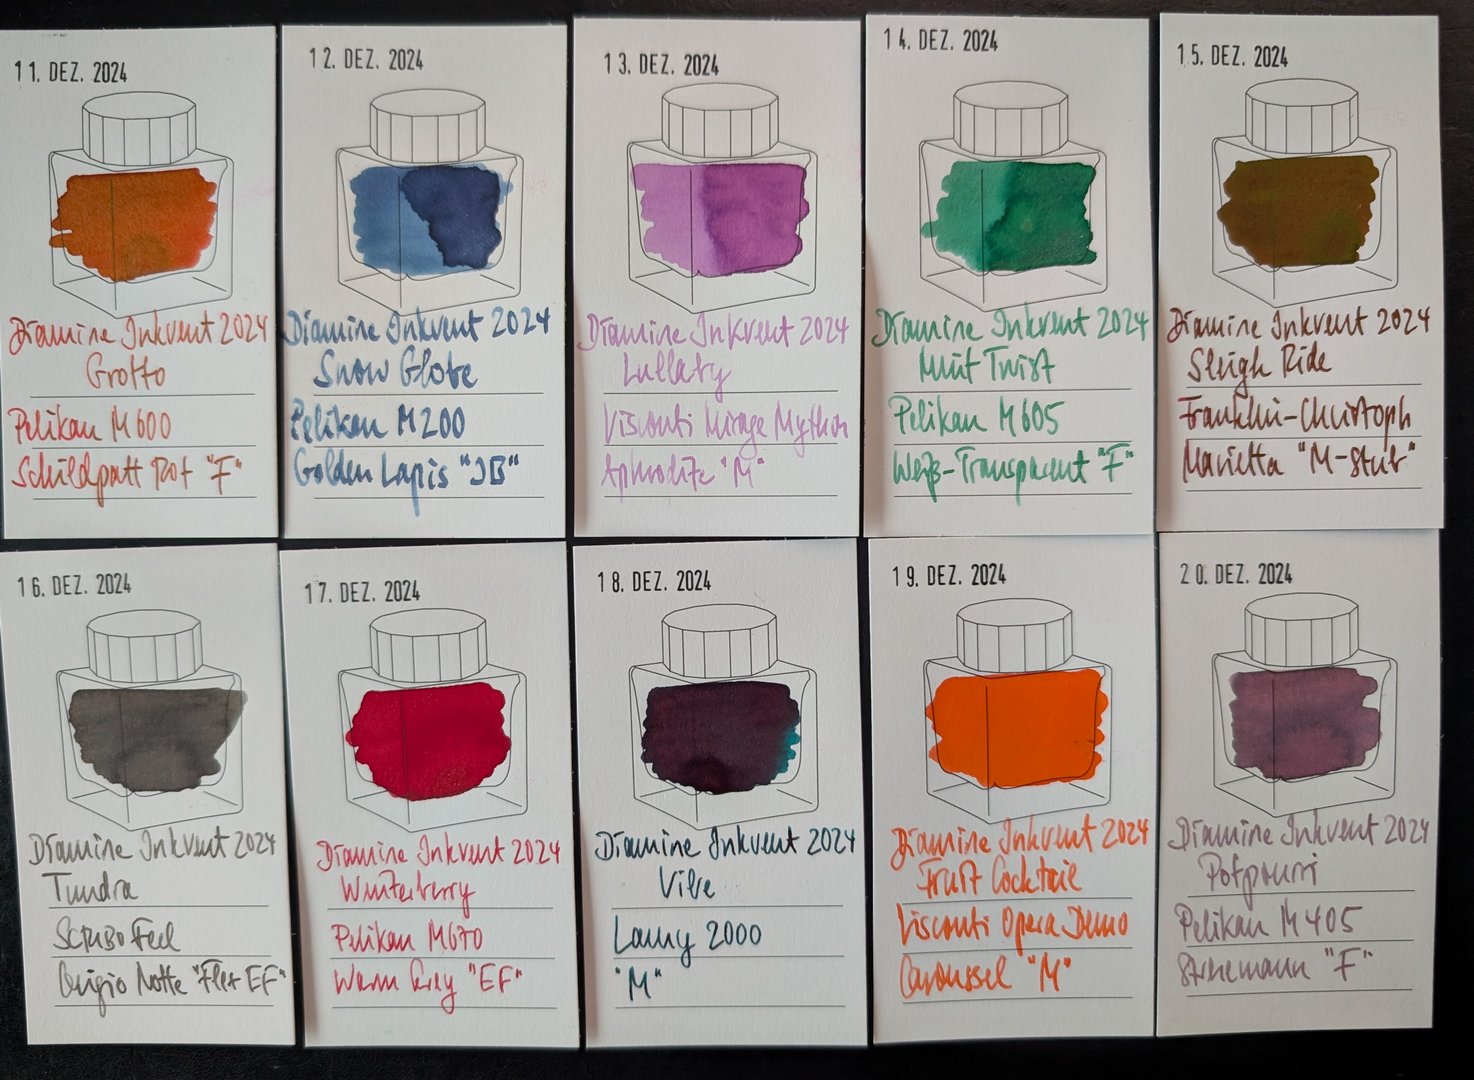 11. DEZ. 2024
Diamine Inkvent 2024
Grotto
Pelikan M600
Schildpatt Rot "F"
12. DEZ. 2024
Diamine Inkvent 2024
Snow Globe
Pelikan M200
Golden Lapis "IB"
13. DEZ. 2024
Diamine Inkvent 2024
Lullaby
Visconti Mirage Mythos
Aphrodite "M"
14. DEZ. 2024
Diamine Inkvent 2024
Mint Twist
Pelikan M605
Weiß-Transparent "F"
15. DEZ. 2024
Diamine Inkvent 2024
Sleigh Ride
Franklin-Christoph
Marietta "M-Stub"
16. DEZ. 2024
Diamine Inkvent 2024
Tundra
Scribo Feel
Grigio Notte "Flex EF"
17. DEZ. 2024
Diamine Inkvent 2024
Winterberry
Pelikan M670
Warm Grey "EF"
18. DEZ. 2024
Diamine Inkvent 2024
Vibe
Lamy 2000
"M"
19. DEZ. 2024
Diamine Inkvent 2024
Fruit Cocktail
Visconti Opera Demo
Caroussel "M"
20. DEZ. 2024
Diamine Inkvent 2024
Potpourri
Pelikan M405
Stresemann "F"